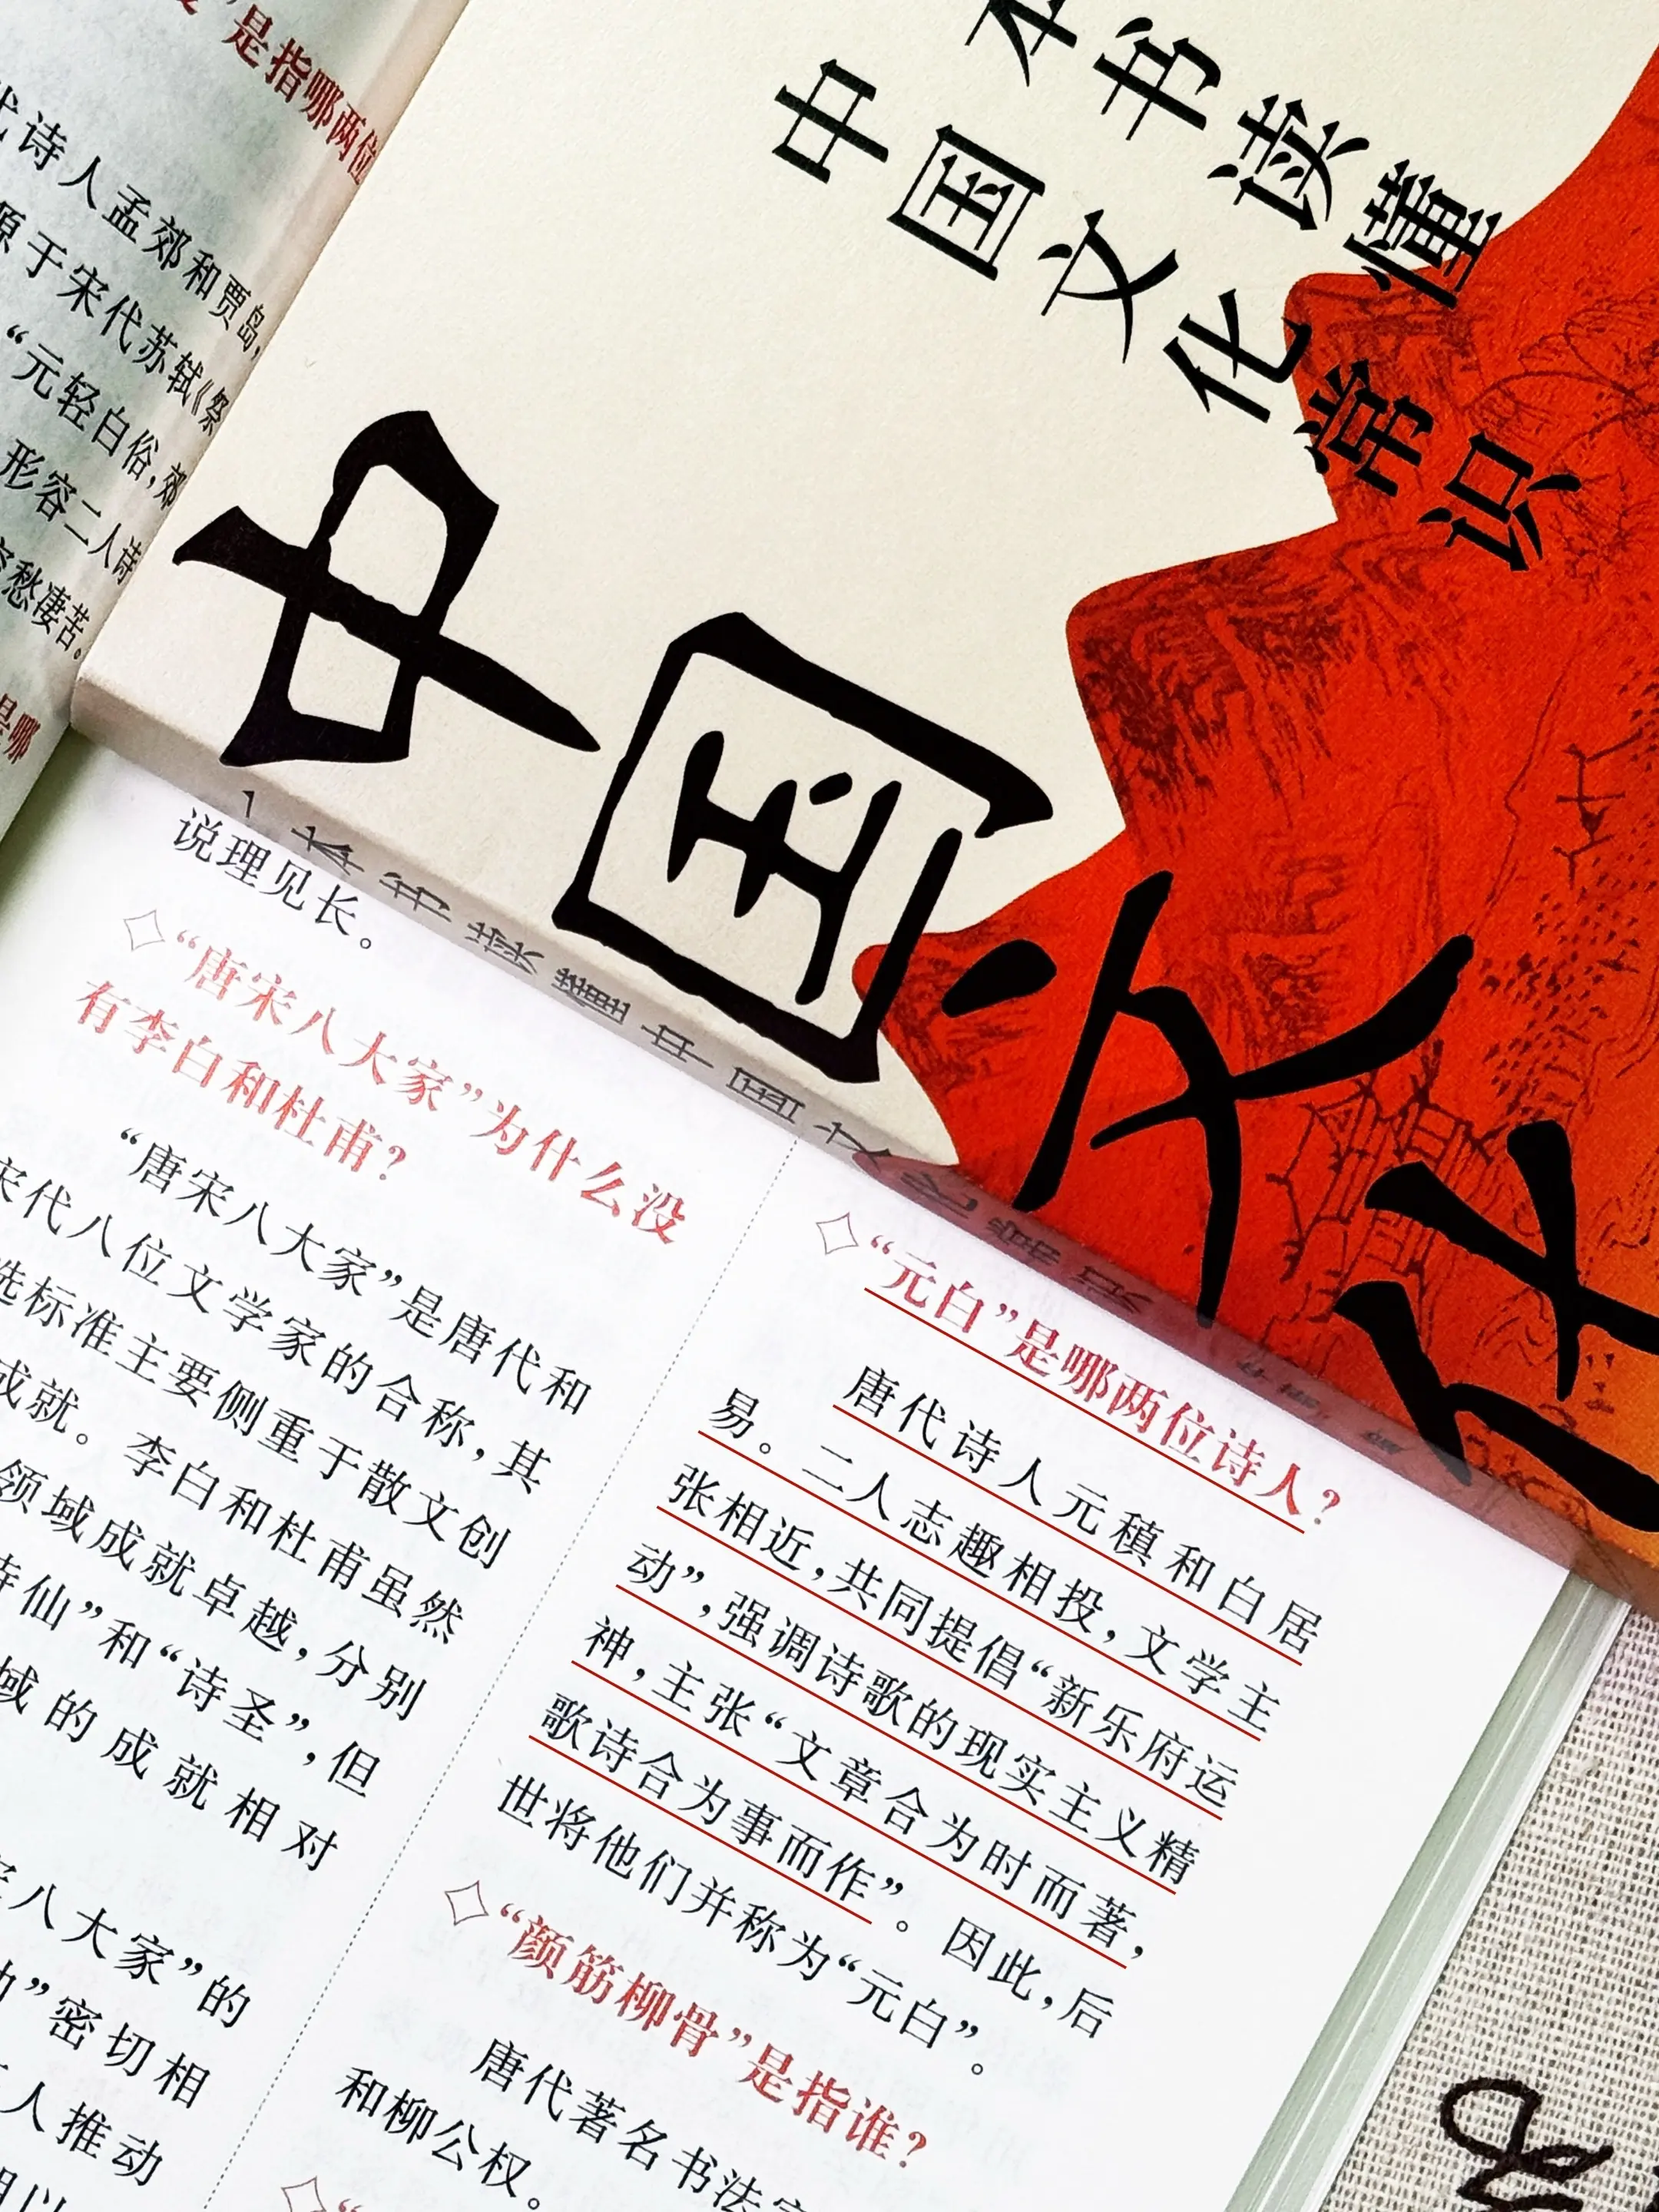 ”是指哪两位
代诗人孟郊和贾岛，
源于宋代苏轼《祭
“元轻白俗，郊
形容二人诗
愁凄苦。
是哪
本书读懂
中国文化常识
中国文化
一本书读懂中国文化常识
说理见长。
◇“唐宋八大家”为什么没
有李白和杜甫？
“唐宋八大家”是唐代和
宋代八位文学家的合称，其
选标准主要侧重于散文创
成就。李白和杜甫虽然
领域成就卓越，分别
诗仙”和“诗圣”，但
域的成就相对
八大家”的
”密切相
人推动
◇“元白”是哪两位诗人？
唐代诗人元稹和白居
易。二人志趣相投，文学主
张相近，共同提倡“新乐府运
动”，强调诗歌的现实主义精
神，主张“文章合为时而著，
歌诗合为事而作”。因此，后
世将他们并称为“元白”。
◇“颜筋柳骨”是指谁？
唐代著名书法家
和柳公权。